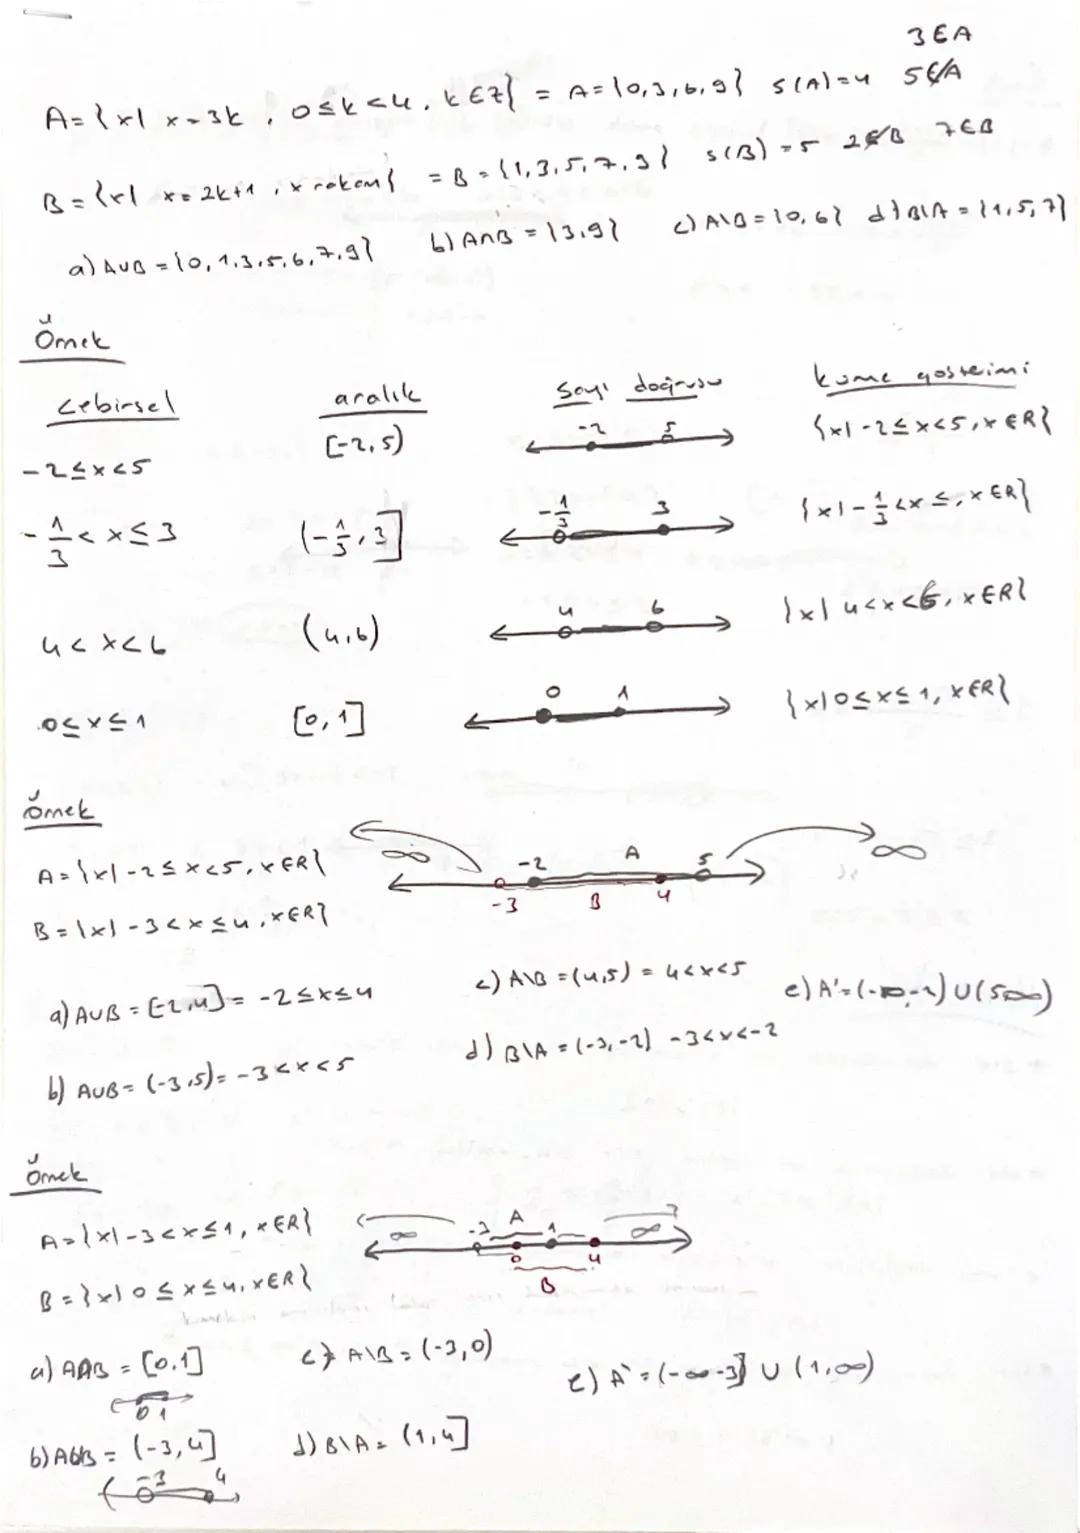 3 ∈ A
A = {x| x = 3k, 0 ≤ k < 4, k ∈ Z} = A = {0,3,6,9} s(A) = 4 5 ∉ A
B = {x| x = 2k+1, x rakam} = B = {1,3,5,7,9} s(B) = 5 2 ∉ B 7 ∈ B
a) A∪B = {0,1,3,5,6,7,9} b) A∩B = {3,9} c) A\B = {0,6} d) B\A = {1,5,7}
Örnek
cebirsel aralık Sayı doğrusu küme gösterimi
-2 ≤ x < 5 [-2,5) -2 5 {x| -2 ≤ x < 5, x ∈ R}
-1/3 < x ≤ 3 (-1/3, 3] -1/3 3 {x| -1/3 < x ≤, x ∈ R}
4 < x < 6 (4,6) 4 6 {x| 4 < x < 6, x ∈ R}
0 ≤ x ≤ 1 [0,1] 0 1 {x| 0 ≤ x ≤ 1, x ∈ R}
Örnek
A = {x| -2 ≤ x < 5, x ∈ R} ∞ -2 A 5 ∞
B = {x| -3 < x ≤ 4, x ∈ R} -3 B 4
a) A∪B = [-2,4] = -2 ≤ x ≤ 4 c) A\B = (4,5) = 4 < x < 5 e) A' = (-∞,-2) ∪ (5∞)
b) A∪B = (-3,5) = -3 < x < 5 d) B\A = (-3,-2) -3 < x < -2
Örnek
A = {x| -3 < x ≤ 1, x ∈ R} ∞ -3 A 1 ∞
B = {x| 0 ≤ x ≤ 4, x ∈ R} 0 4 B
a) A∩B = [0,1] c) A\B = (-3,0) e) A' = (-∞-3] ∪ (1,∞)
0 1
b) A∪B = (-3,4] d) B\A = (1,4]
-3 4